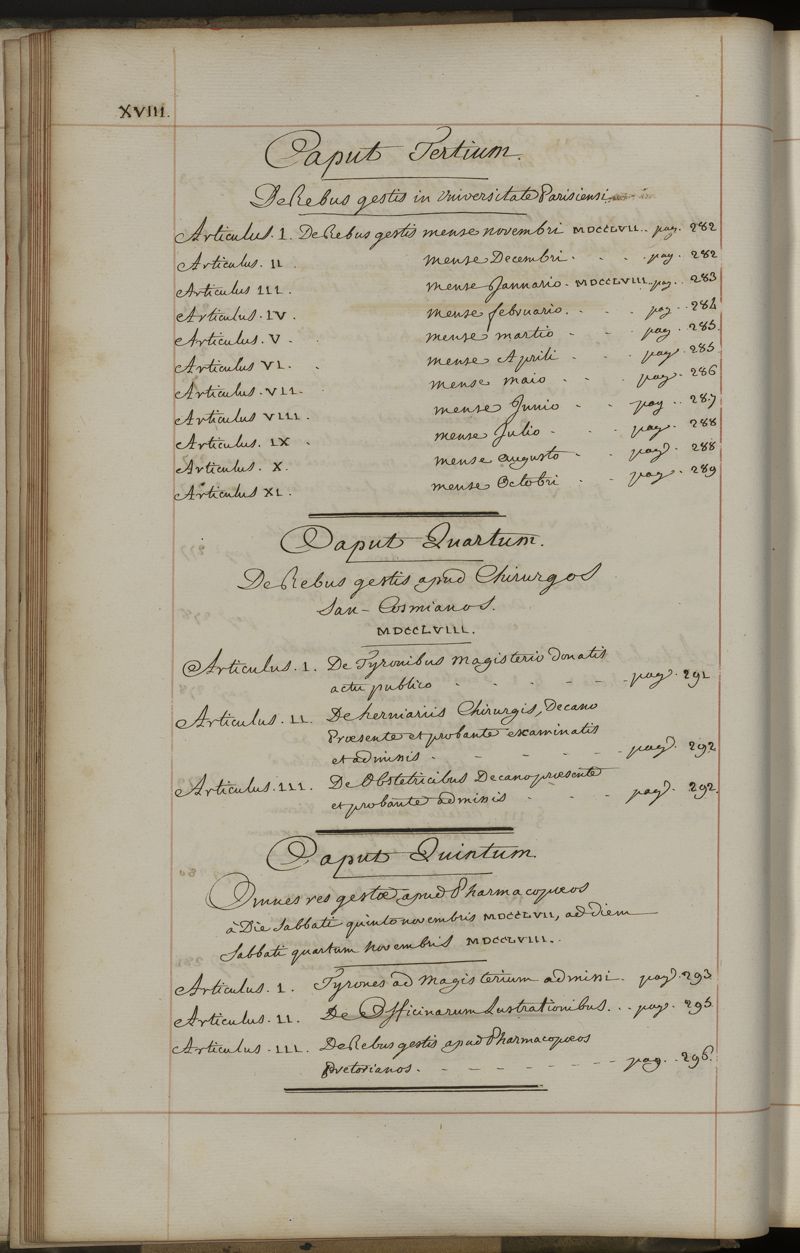 XVIII.
Caput Tertium.
De Rebus gestis in Universitate Parisiensi
Articulus. I. De Rebus gestis mense novembri MDCCLVII.. pag. 282
Articulus. II . mense Decembri . . . pag. 282
Articulus III . mense Jannario . MDCCLVIII.. pag. . 283
Articulus . IV . mense februario . . . pag . . 284
Articulus . V . . mense martio - - . pag . 285.
Articulus VI . . mense Aprili . . . pag . 285
Articulus . VII . mense maio . . . pag . . 286
Articulus VIII . mense Junio . . pag . . 287
Articulus . IX . mense Julio . . . pag . 288
Articulus . X . mense augusto . . pag . 288
Articulus XI . mense Octobri . . pag . 289
Caput Quartum.
De Rebus gestis apud Chirurgos
San-Cosmianos.
MDCCLVIII.
Articulus . I. De Tyronibus magisterio donatis
actu publico - - - - - - pag . 291
Articulus . II. De herniariis Chirurgis, Decano
Præsente et probante examinatis
et admissis . - - - - - pag . 292
Articulus . III. De Obstetricibus Decano præsente
et probante admissis - - - pag . 292.
Caput Quintum.
Omnes res gestæ apud Pharmacopæos
à Die Sabbati quinto novembris MDCCLVII, ad diem
Sabbati quartum novembris MDCCLVIII..
Articulus . I. Tyrones ad magisterium admissi . pag . 293
Articulus . II. De Officinarum Lustrationibus . . . pag . 295
Articulus . III. De Rebus gestis apud Pharmacopæos
Pretorianos . - - - - - - - pag . . 296.